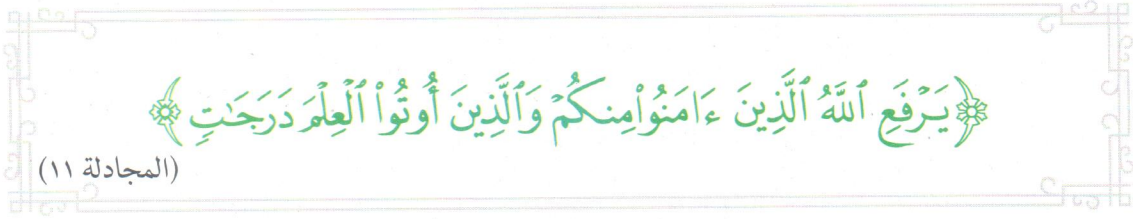 ﴿يَرْفَعِ ٱللَّهُ ٱلَّذِينَ ءَامَنُوا۟ مِنكُمْ وَٱلَّذِينَ أُوتُوا۟ ٱلْعِلْمَ دَرَجَـٰتٍ﴾
(المجادلة ١١)